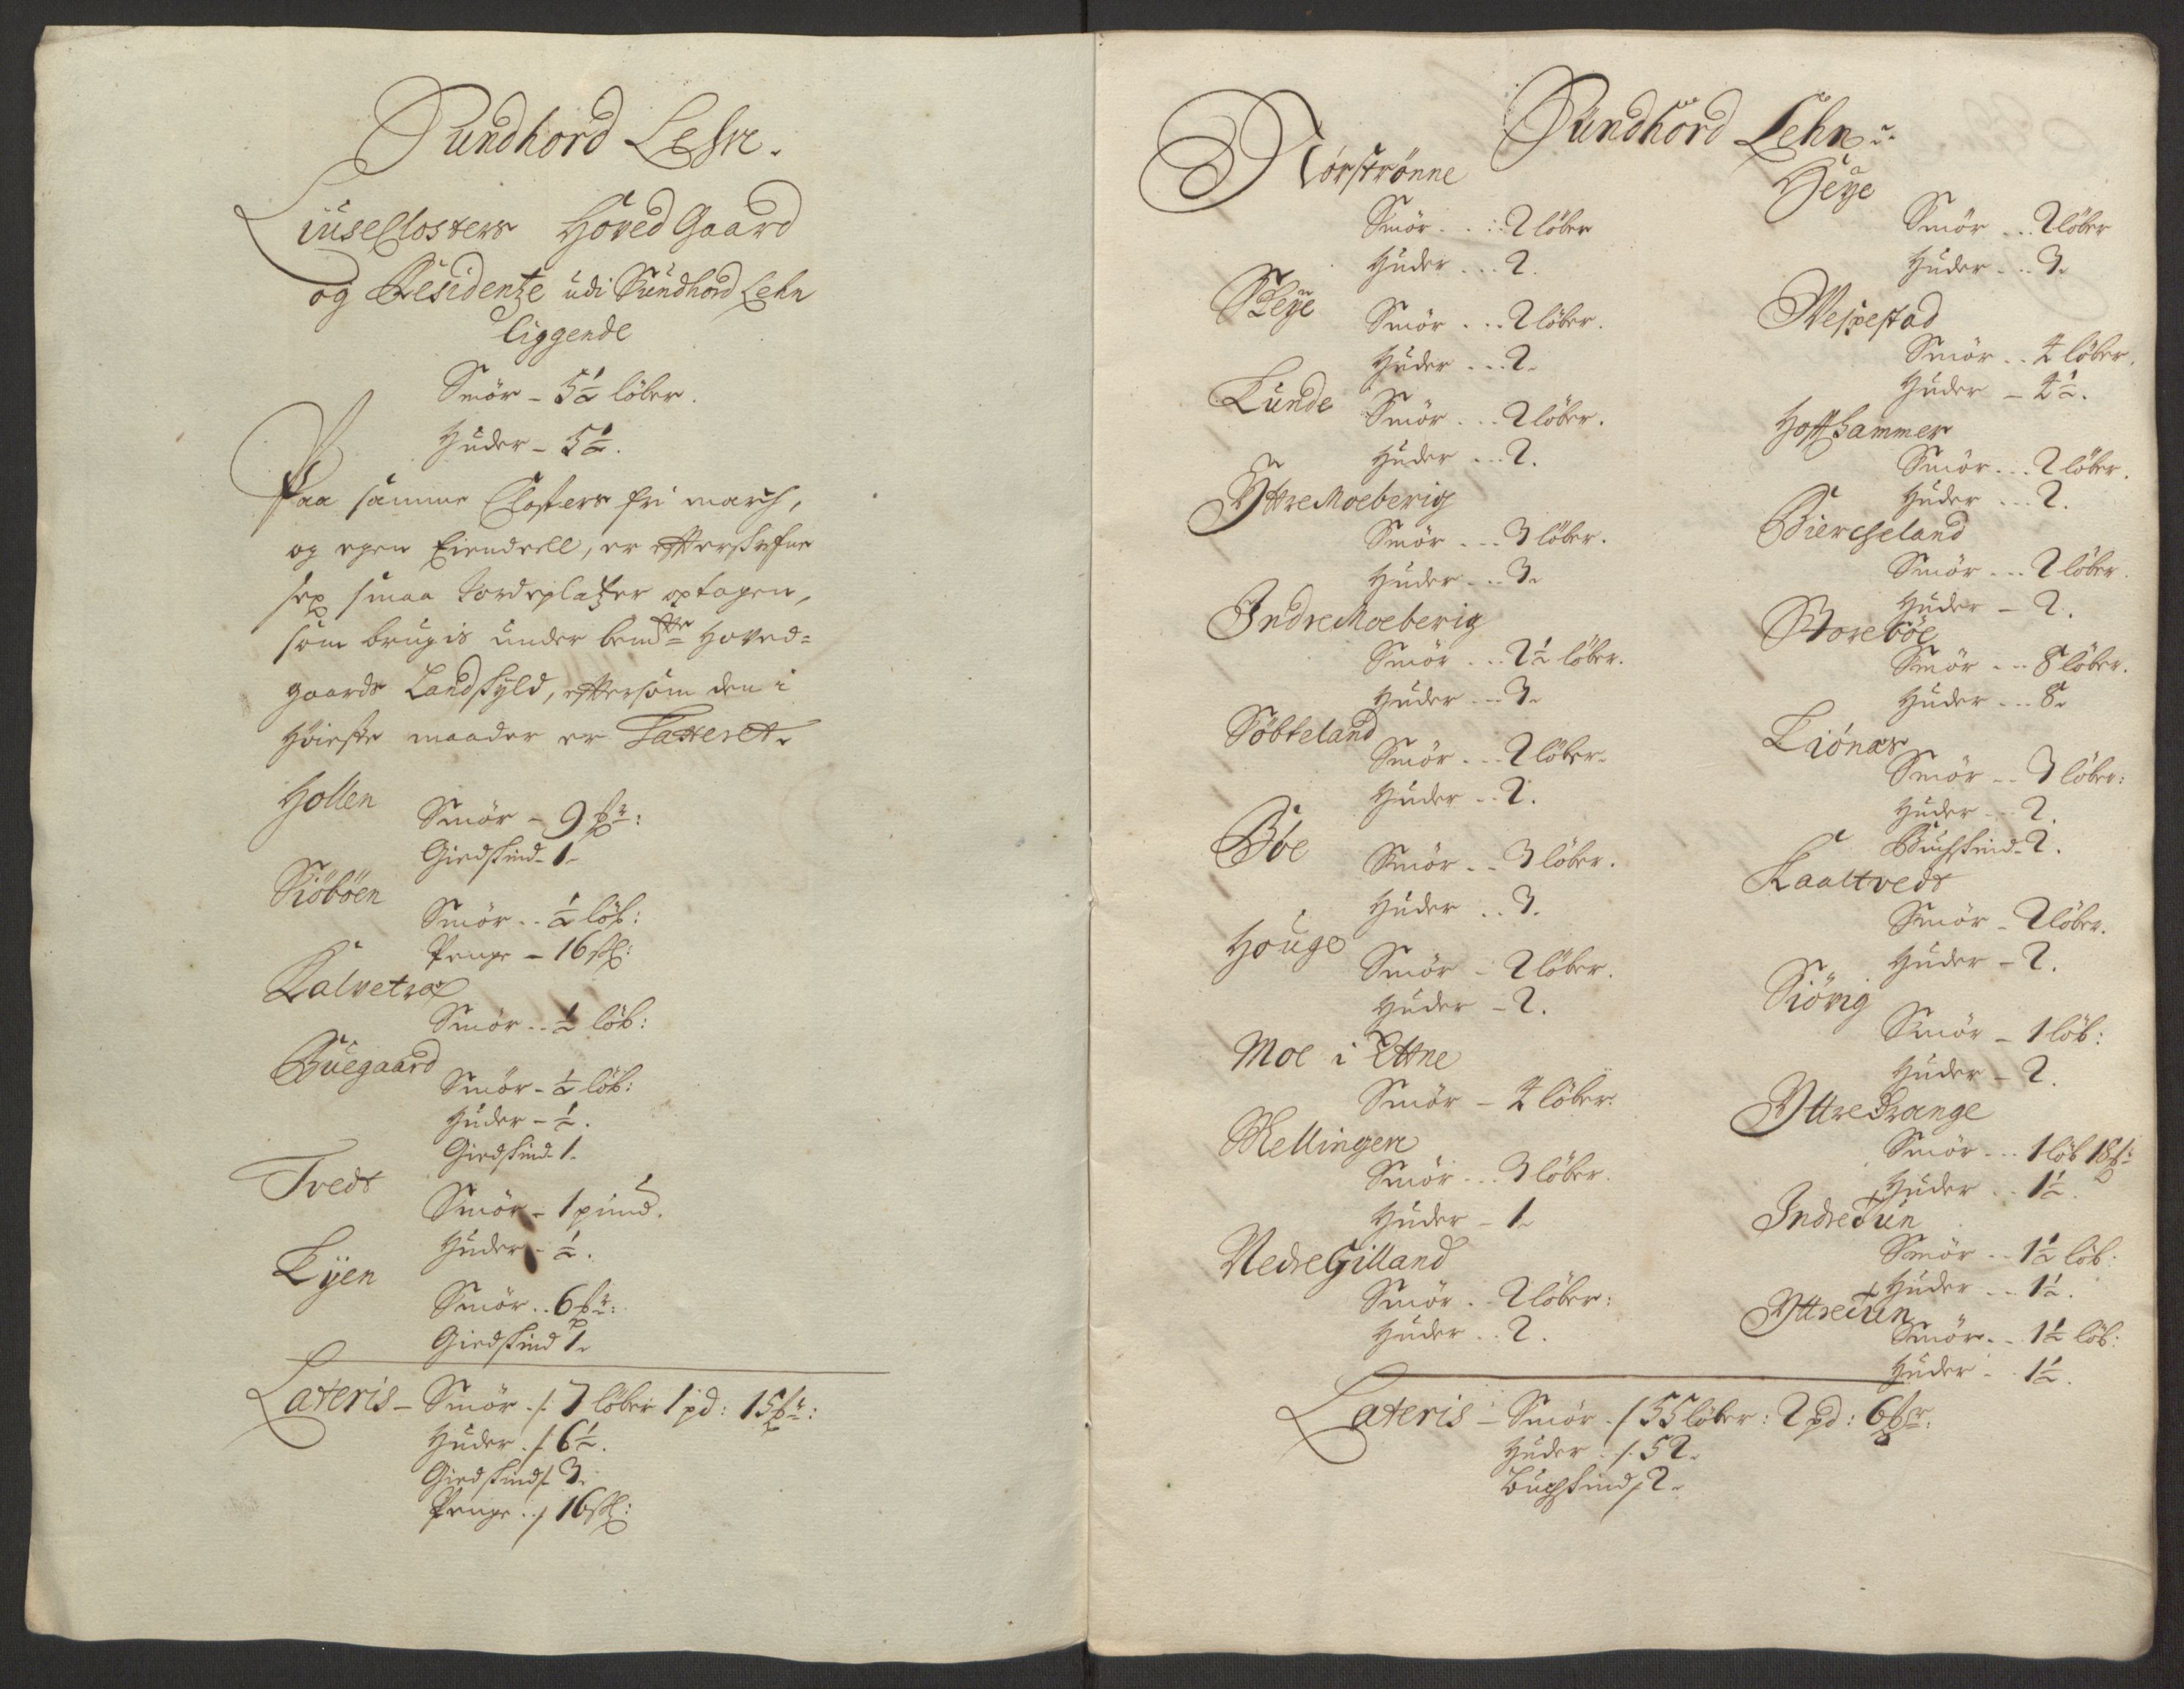 Sundhord Lehn.
Lüseclosters Hoved Gaard
og Residentze udi Sundhord Lehn
liggende
Smör - 5½ löber.
Huder - 5½.
Paa samme Closters fri march,
og egen Eiendeell, er effterskrefne
sex smaa Jordeplatzer optagen,
som brugis under bemte Hoved-
gaards Landskyld, effter som den i
Höieste maader er Taxeret.
Hollen
Smör - 9 mr:
Giedskind - 1.
Siöböen
Smör .. ½ löb:
Penge - 16 sk:
Kalvetræ
Smör .. ½ löb:
Buegaard
Smör - ½ löb:
Huder - ½.
Giedskind 1.
Tvedt
Smör - 1 pund.
Huder - ½.
Lyen
Smör .. 6 mr:
Giedskind 1.
Lateris - Smör ./. 7 löber 1 pd: 15 mr:
Huder ./. 6½.
Giedskind ./. 3.
Penge ./. 16 sk:
Sündhord Lehn.
Nörströnne
Smör ... 2 löber
Huder ... 2.
Skeye
Smör ... 2 löber.
Huder ... 2.
Lunde
Smör ... 2 löber.
Huder ... 2.
Yttre Moeberig
Smör ... 3 löber.
Huder ... 3.
Indre Moeberig
Smör ... 2½ löber.
Huder ... 3.
Söbteland
Smör ... 2 löber.
Huder .. 2.
Böe
Smör .. 3 löber.
Huder .. 3.
Houge
Smör - 2 löber.
Huder - 2.
Moe i Ettne
Smör - 4 löber.
Mellingen
Smör ... 3 löber.
Huder - 1.
Nedre Gilland
Smör .. 2 löber:
Huder .. 2.
Heye
Smör ... 2 löber
Huder ... 3.
Wespestad
Smör .. 4 löber.
Huder - 4½.
Hoffhammer
Smör ... 2 löber.
Huder ... 2.
Bierckeland
Smör ... 2 löber.
Huder - 2.
Storeböe
Smör ... 8 löber.
Huder ... 8.
Liönæs
Smör .. 3 löber:
Huder ... 2.
Buchskind - 2.
Kaaltvedt
Smör - 2 löber.
Huder - 2.
Siövig
Smör - 1 löb:
Huder - 2.
Yttre Drange
Smör ... 1 löb 18 mr:
Huder .. 1½.
Indre Tun
Smör .. 1½ löb:
Huder ... 1½.
Yttre Tun
Smör .. 1½ löb:
Huder .. 1½.
Lateris - Smör ./. 55 löber: 2 pd: 6 mr:
Huder ./. 52.
Buchskind ./. 2.